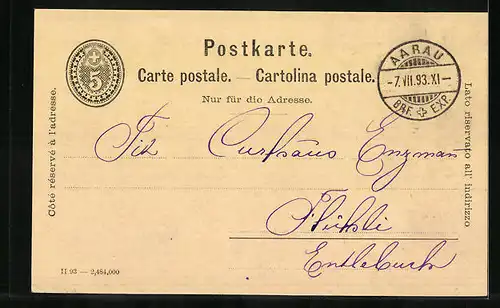 Postkarte.
5
Carte postale. — Cartolina postale.
Nur für die Adresse.
AARAU
-7.VII.93.XI-
BRF. EXP.
Côté réservé à l'adresse.
Lato riservato all' indirizzo
Tit Curhaus Enzman
Flühli
Entlebuch
II 93 — 2,484,000